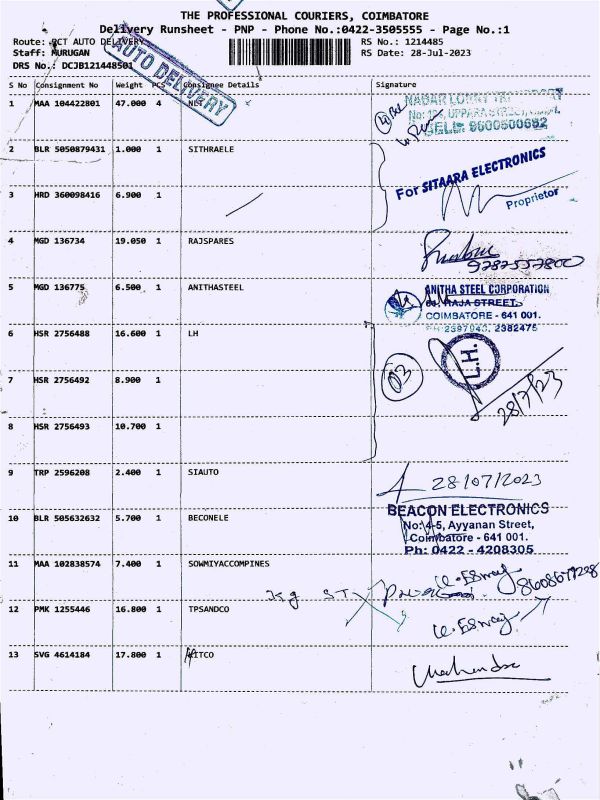 THE PROFESSIONAL COURIERS, COIMBATORE
Delivery Runsheet - PNP - Phone No.:0422-3505555 - Page No.:1
Route: PCT AUTO DELIVERY
RS No.: 1214485
Staff: MURUGAN
RS Date: 28-Jul-2023
DRS No.: DCJB121448501
AUTO DELIVERY
S No Consignment No Weight PCS Consignee Details Signature
1 MAA 104422801 47.000 4
2 BLR 5050879431 1.000 1 SITHRAELE
For SITAARA ELECTRONICS
3 HRD 360098416 6.900 1
Proprietor
4 MGD 136734 19.050 1 RAJSPARES
9787557800
5 MGD 136775 6.500 1 ANITHASTEEL
ANITHA STEEL CORPORATION
RAJA STREET,
COIMBATORE - 641 001.
2382475
6 HSR 2756488 16.600 1 LH
L.H.
03
7 HSR 2756492 8.900 1
28/7/23
8 HSR 2756493 10.700 1
9 TRP 2596208 2.400 1 SIAUTO
28/07/2023
10 BLR 505632632 5.700 1 BECONELE
BEACON ELECTRONICS
No:4-5, Ayyanan Street,
Coimbatore - 641 001.
Ph: 0422 - 4208305
11 MAA 102838574 7.400 1 SOWMIYACCOMPINES
12 PMK 1255446 16.800 1 TPSANDCO
13 SVG 4614184 17.800 1